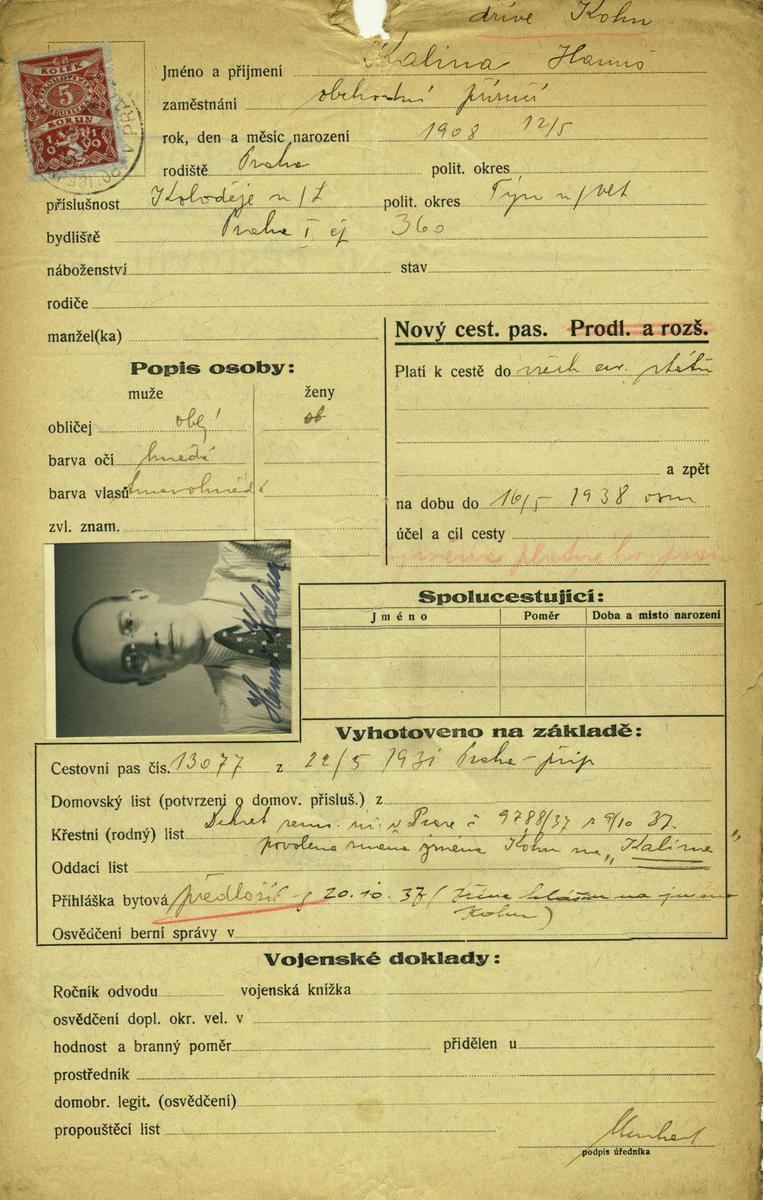 dříve Kohn
KOLEK
5
KORUN
Jméno a příjmení Kalina Hanuš
zaměstnání obchodní příručí
rok, den a měsíc narození 1908 12/5
rodiště Praha polit. okres
příslušnost Koloděje n/L polit. okres Týn n/Vlt
bydliště Praha I čj 360
náboženství stav
rodiče
manžel(ka)
Nový cest. pas. Prodl. a rozš.
Popis osoby:
muže ženy
Platí k cestě do všech ev. států
obličej obl ob
barva očí hnedé
barva vlasů tmavohnědé
zvl. znam.
a zpět
na dobu do 16/5 1938 osm
účel a cíl cesty
výměna platného pasu
Hanuš Kalina
Spolucestující:
Jméno Poměr Doba a místo narození
Vyhotoveno na základě:
Cestovní pas čís. 13077 z 22/5 1931 Praha
Domovský list (potvrzení o domov. přísluš.) z
Dekret zem. úř. v Praze č 9788/37 z 9/10 37.
Křestní (rodný) list
povolena změna jména Kohn na „Kalina"
Oddací list
Přihláška bytová předložit 20.10.37 ( na jméno
Kohn)
Osvědčení berní správy v
Vojenské doklady:
Ročník odvodu vojenská knížka
osvědčení dopl. okr. vel. v
hodnost a branný poměr přidělen u
prostředník
domobr. legit. (osvědčení)
propouštěcí list
podpis úředníka